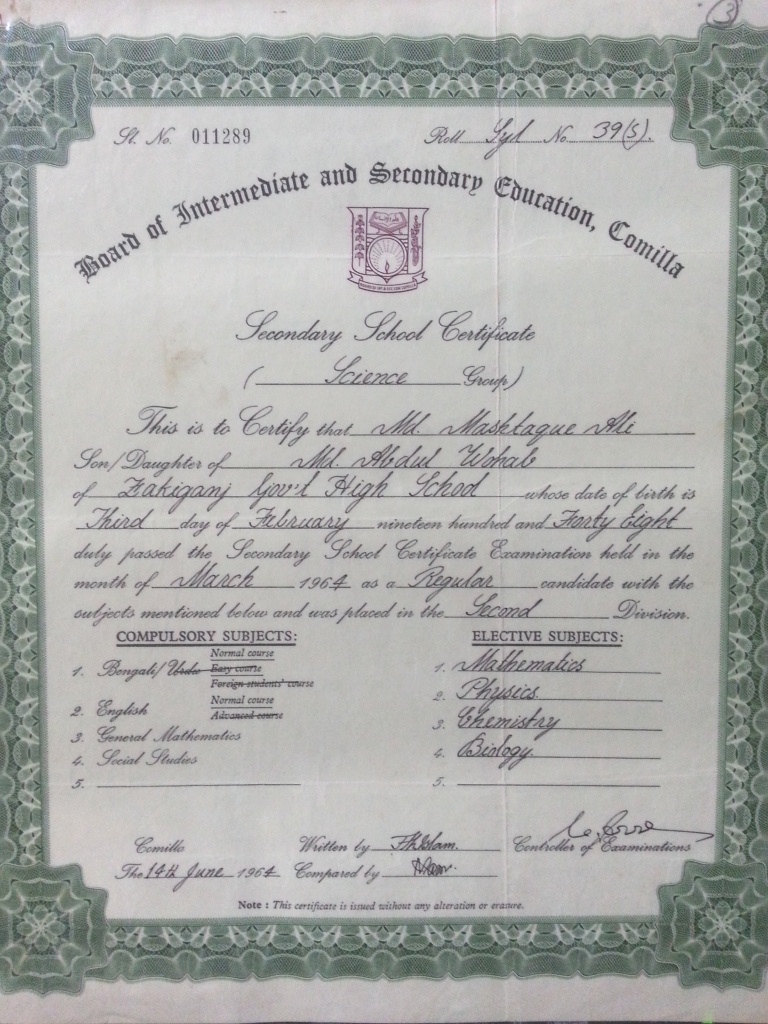 3
Sl. No. 011289 Roll Syl No 39(S).
Board of Intermediate and Secondary Education, Comilla
Secondary School Certificate
( Science Group)
This is to Certify that Md. Mashtaque Ali
Son/Daughter of Md. Abdul Wohab
of Zakiganj Gov't High School whose date of birth is
Third day of February nineteen hundred and Forty Eight
duly passed the Secondary School Certificate Examination held in the
month of March 1964 as a Regular candidate with the
subjects mentioned below and was placed in the Second Division.
COMPULSORY SUBJECTS:
Normal course
1. Bengali/Urdu Easy course
Foreign students' course
Normal course
2. English Advanced course
3. General Mathematics
4. Social Studies
5.
ELECTIVE SUBJECTS:
1. Mathematics
2. Physics
3. Chemistry
4. Biology
5.
Comilla Written by Controller of Examinations
The 14th June 1964 Compared by
Note : This certificate is issued without any alteration or erasure.